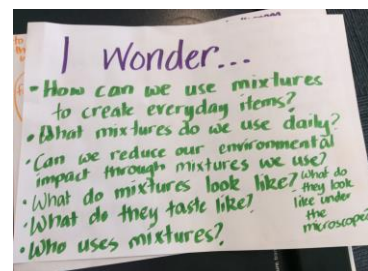 I Wonder...
- How can we use mixtures
to create everyday items?
• What mixtures do we use daily?
• Can we reduce our environmental
impact through mixtures we use?
• What do mixtures look like?
• What do they taste like?
What do
they look
like under
the
microscope?
• Who uses mixtures?